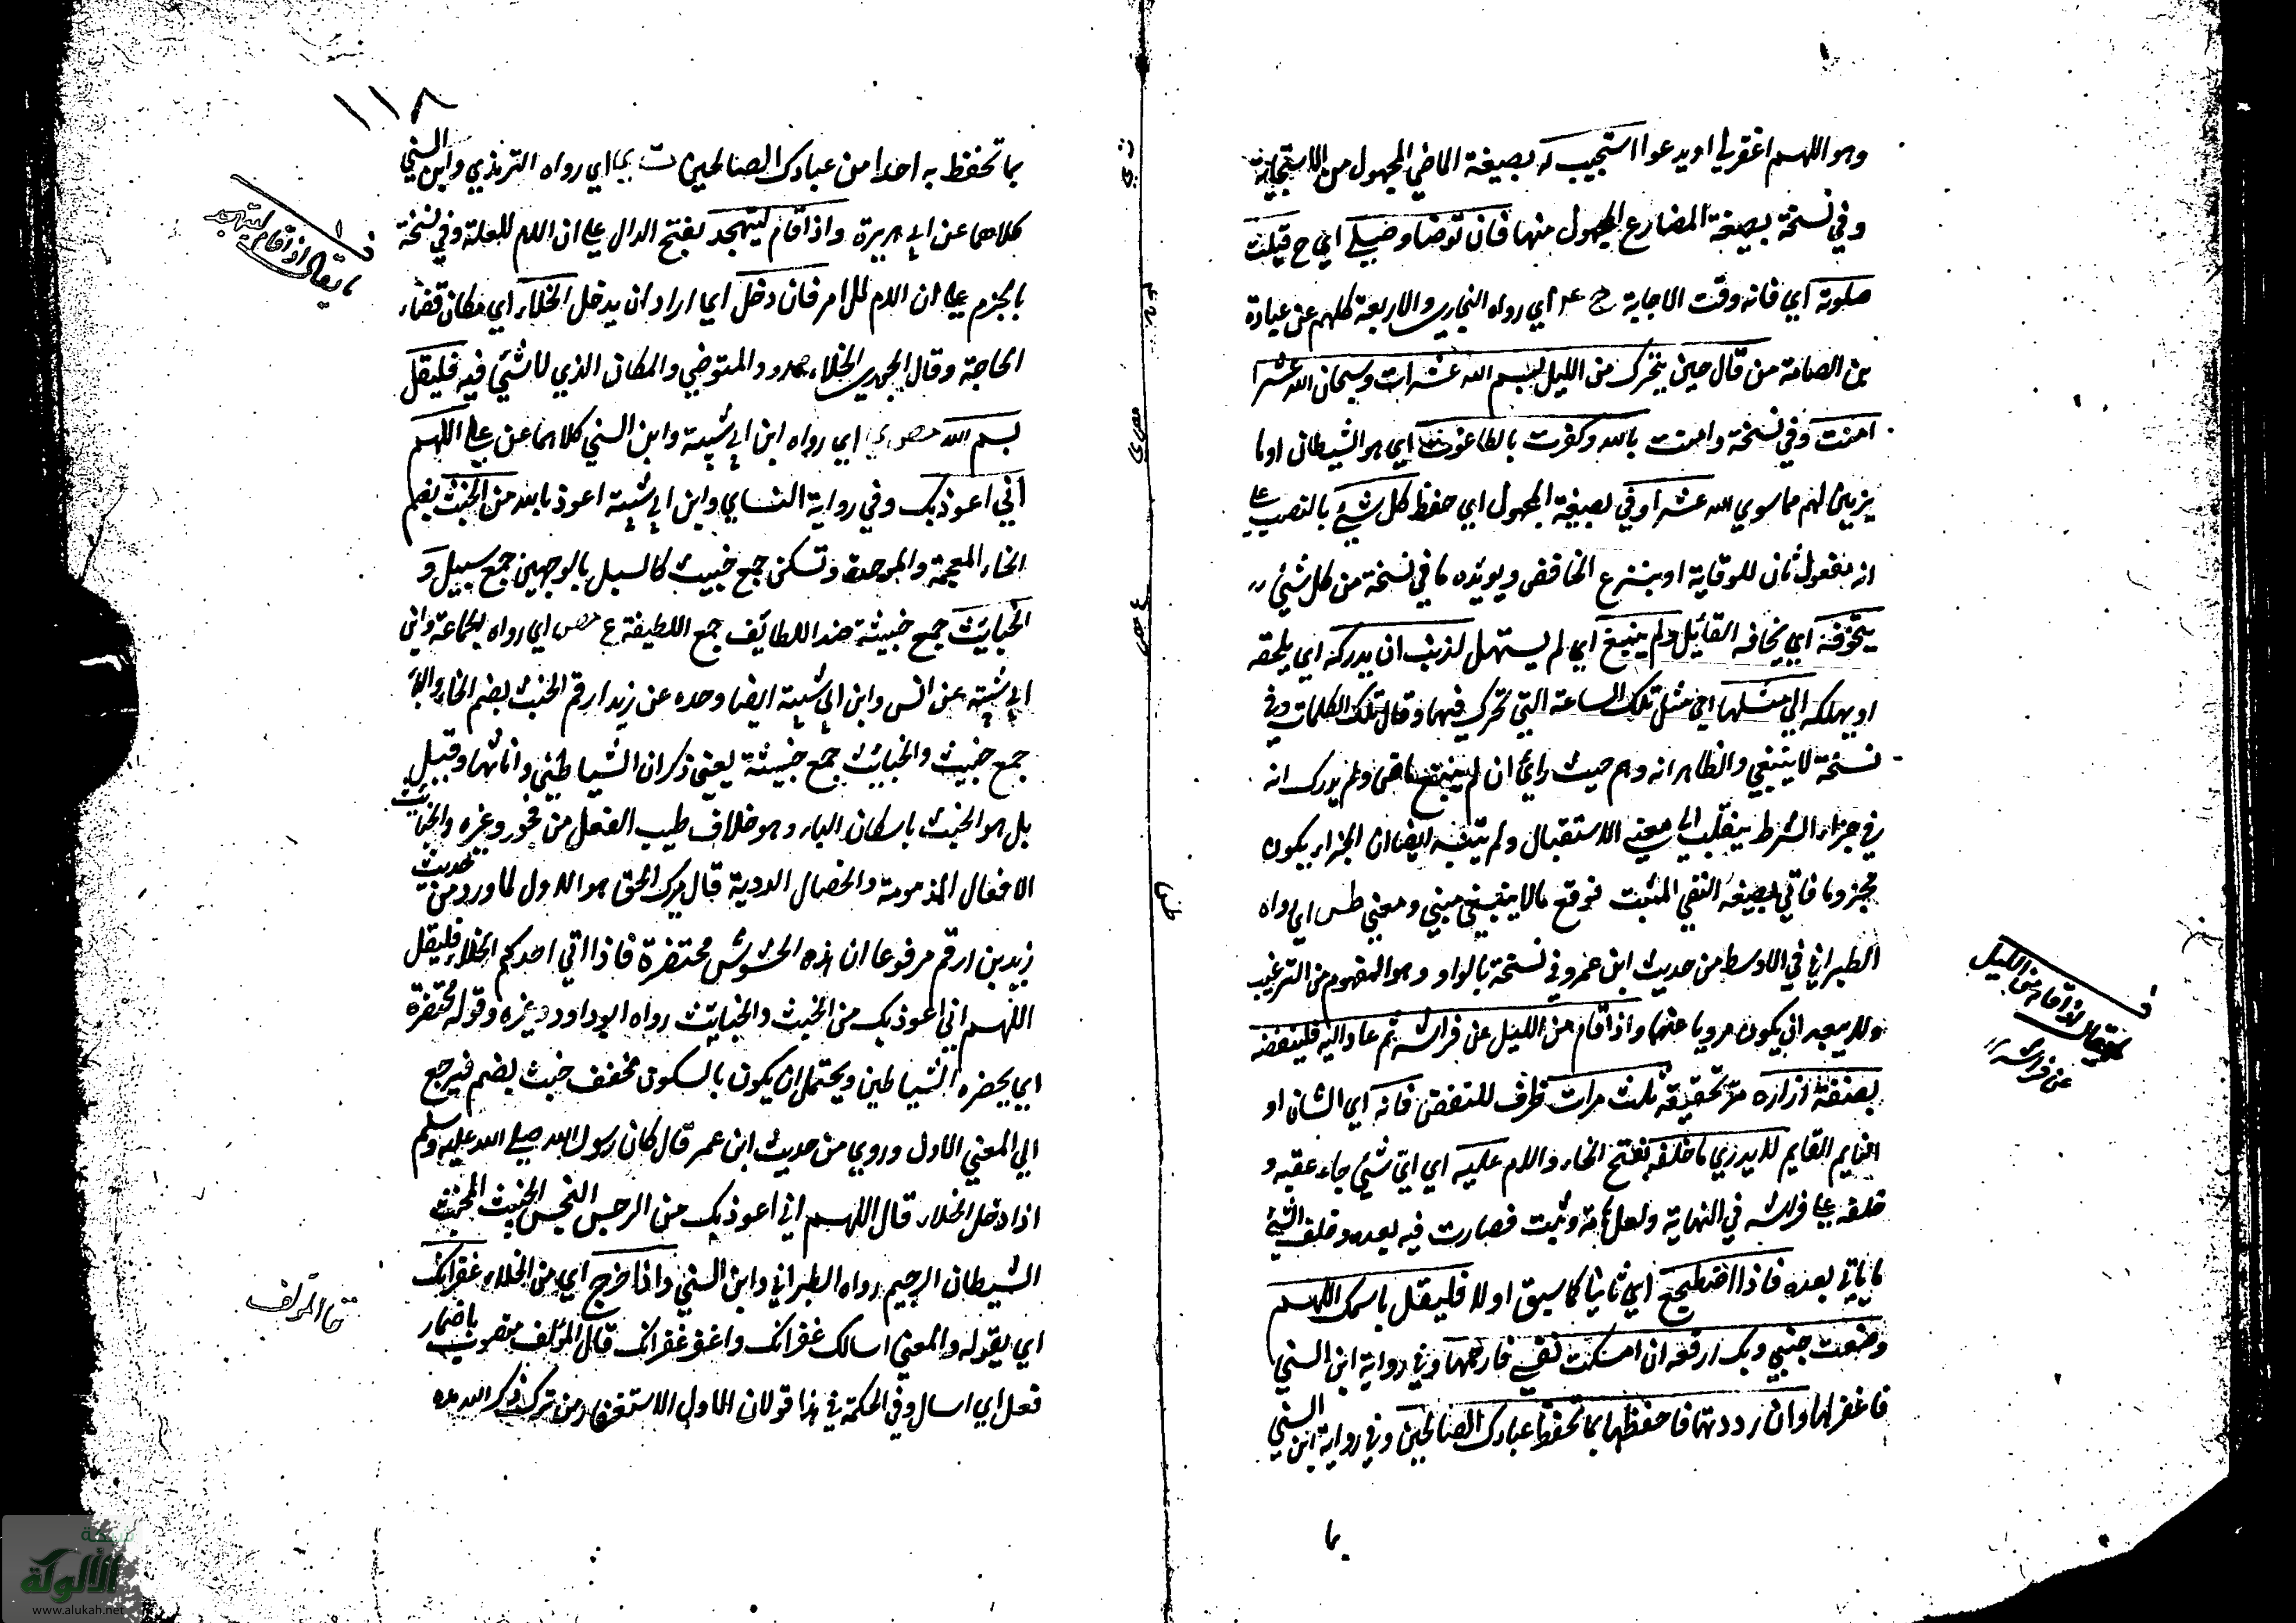 وهو اللهم اغفر لي او يدعوا استجيب له بصيغة الماضي المجهول من الاستجابة
وفي نسخة بصيغة المضارع المجهول منها فان توضا وصلي اي ح قبلت
صلوته اي فانه وقت الاجابة خ عه اي رواه البخاري والاربعة كلهم عن عبادة
بن الصامة من قال حين يتحرك من الليل بسم الله عشر مرات وسبحان الله عشرا
امنت وفي نسخة وامنت بالله وكفرت بالطاغوت اي هو الشيطان او ما
يزين لهم مما سوي الله عشرا وقي بصيغة المجهول اي حفظ كل شيء بالنصب علي
انه مفعول ثان للوقاية او بنزع الخافض ويويده ما في نسخة من كل شيء
يتخوفه اي يخافه القائل ولم ينبغ اي لم يستهل لذنب ان يدركه اي يلحقه
او يهلكه الي مثلها اي مثل تلك الساعة التي تحرك فيها وقال تلك الكلمات وفي
نسخة لا ينبغي والظاهر انه وهم حيث راي ان لم ينبغ ماض ولم يدرك انه
في جزاء الشرط ينقلب الي معني الاستقبال ولم يتنبه ايضا ان الجزاء يكون
مجزوما فاتي بصيغة النفي المثبت فوقع مالا ينبغي مبني ومعني طس اي رواه
الطبراني في الاوسط من حديث ابن عمرو وفي نسخة بالواو وهو المفهوم من الترغيب
ولا يبعد ان يكون مرويا عنهما واذا قام من الليل عن فراشه ثم عاد اليه فلينفضه
بصنفة ازاره مر تحقيقه ثلث مرات ظرف للنفض فانه اي الشان او
النايم القايم لا يدري ما خلفه بفتح الخاء واللام عليه اي اي شيء جاء عقبه و
خلفه علي فراشه في النهاية ولعل هامة دبت فصارت فيه بعده وخلف الشيء
ما ياتي بعده فاذا اضطجع اي ثانيا كما سبق اولا فليقل باسمك اللهم
وضعت جنبي وبك ارفعه ان امسكت نفسي فارحمها وفي رواية ابن السني
فاغفر لها وان رددتها فاحفظها بما تحفظ عبادك الصالحين وفي رواية ابن السني
بما
ما يقال اذا قام من الليل
عن فراشه
١١٨
بما تحفظ به احدا من عبادك الصالحين ت ي اي رواه الترمذي وابن السني
كلاهما عن ابي هريرة واذا قام ليتهجد بفتح الدال علي ان اللام للعلة وفي نسخة
بالجزم علي ان اللام للامر فان دخل اي اراد ان يدخل الخلاء اي مكان قضاء
الحاجة وقال الجوهري الخلاء ممدود المتوضي والمكان الذي لا شيء فيه فليقل
بسم الله مص ي اي رواه ابن ابي شيبة وابن السني كلاهما عن علي اللهم
اني اعوذ بك وفي رواية النساي وابن ابي شيبة اعوذ بالله من الخبث بضم
الخاء المعجمة والموحدة وتسكن جمع خبيث كالسبل بالوجهين جمع سبيل و
الخبايث جمع خبيثة ضد اللطايف جمع اللطيفة ع مص اي رواه الجماعة وابن
ابي شيبة عن انس وابن ابي شيبة ايضا وحده عن زيد ارقم الخبث بضم الخاء والباء
جمع خبيث والخبائث جمع خبيثة يعني ذكران الشياطين واناثها وقيل
بل هو الخبث باسكان الباء وهو خلاف طيب الفعل من فجور وغيره والخبايث
الافعال المذمومة والخصال الردية قال ميرك الحق هو الاول لما ورد من حديث
زيد بن ارقم مرفوعا ان هذه الحشوش محتضرة فاذا اتي احدكم الخلاء فليقل
اللهم اني اعوذ بك من الخبث والخبايث رواه ابو داود وغيره وقوله محتضرة
اي يحضره الشياطين ويحتمل ان يكون بالسكون مخفف خبث بضم فيرجع
الي المعني الاول وروي من حديث ابن عمر قال كان رسول الله صلي الله عليه وسلم
اذا دخل الخلاء قال اللهم اني اعوذ بك من الرجس النجس الخبيث المخبث
الشيطان الرجيم رواه الطبراني وابن السني واذا خرج اي من الخلاء غفرانك
اي يقوله والمعني اسالك غفرانك واغفر غفرانك قال المؤلف منصوب باضمار
فعل اي اسال وفي الحكمة في هذا قولان الاول الاستغفار من ترك ذكر الله مده
ما يقال اذا قام ليتهجد
قا المؤلف
شبكة
الألوكة
www.alukah.net